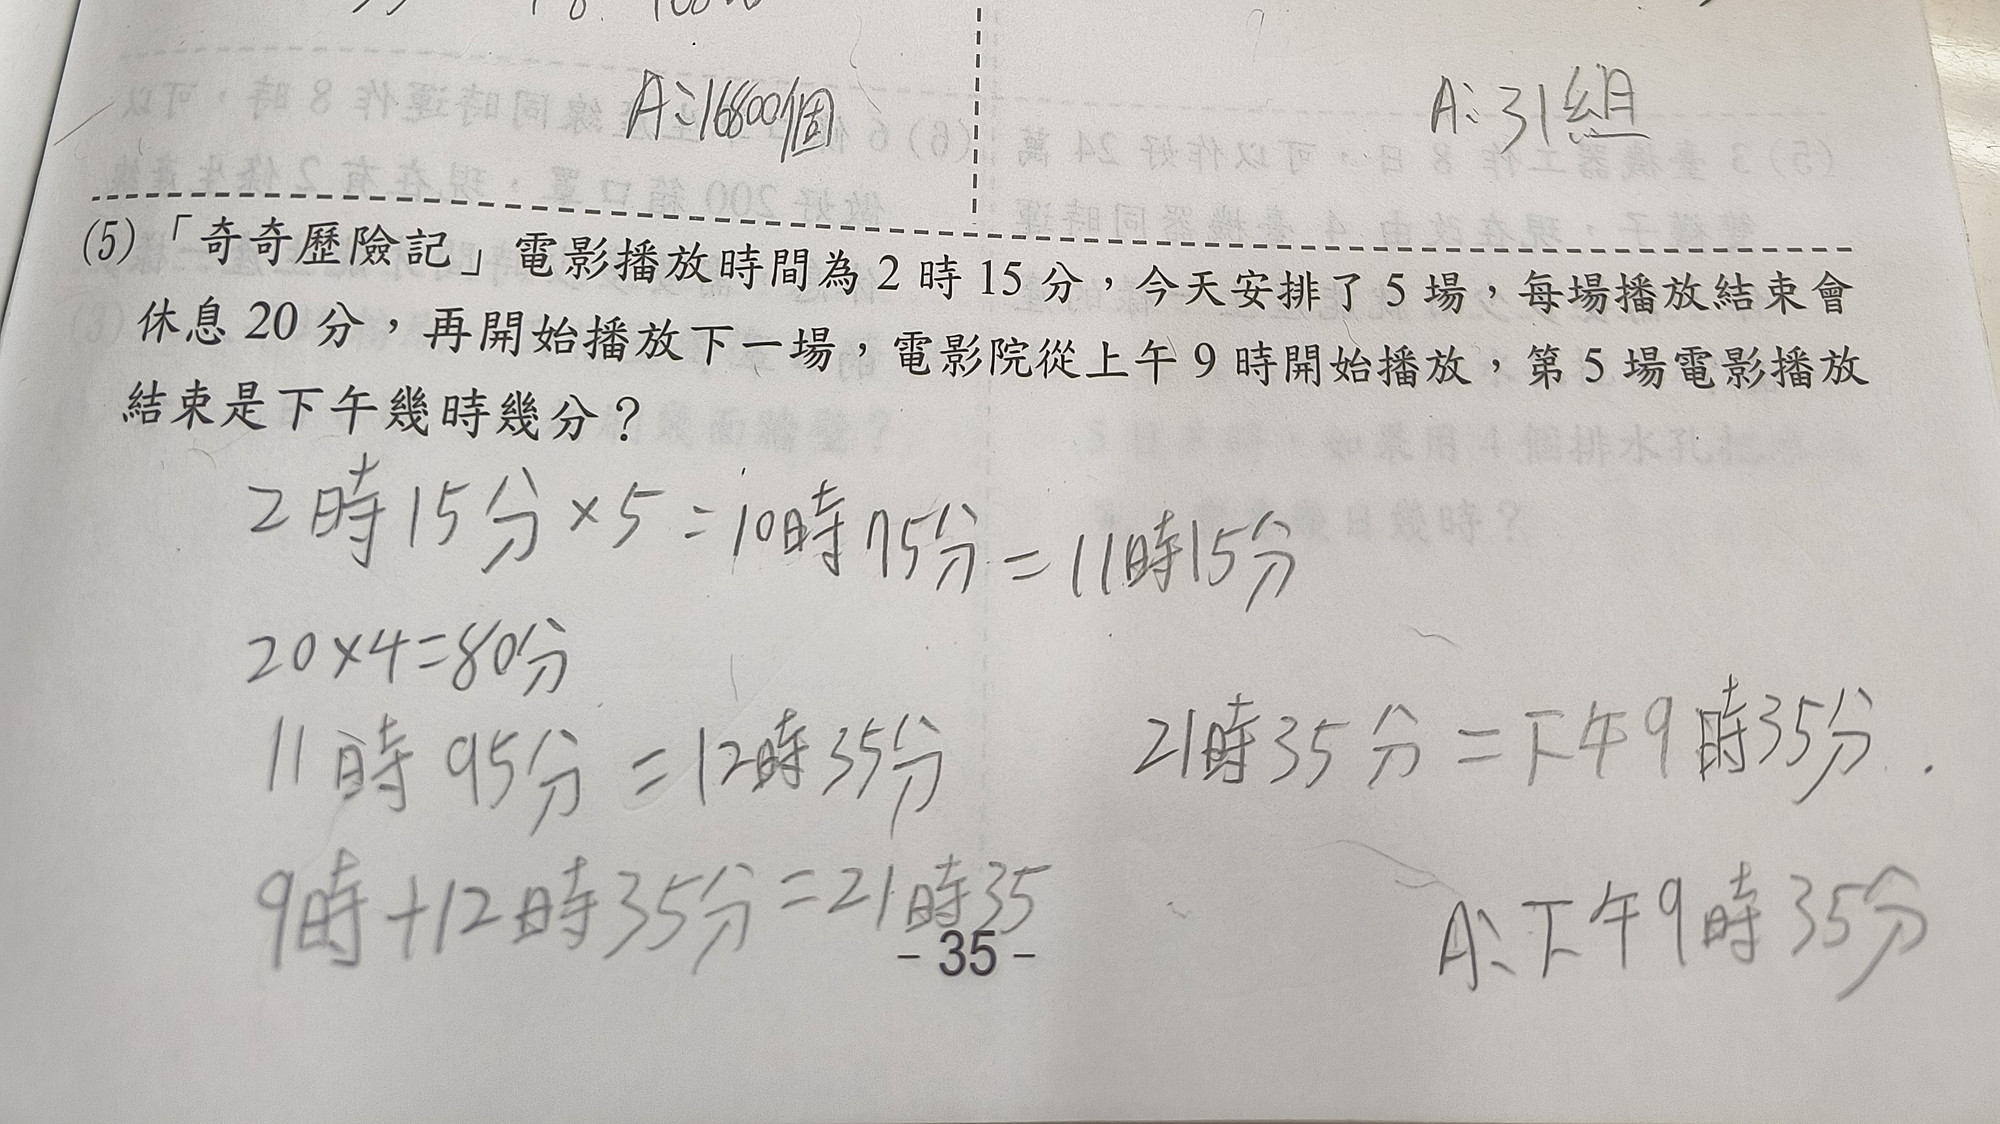 A:16800個
A:31組
(5)「奇奇歷險記」電影播放時間為 2 時 15 分，今天安排了 5 場，每場播放結束會
休息 20 分，再開始播放下一場，電影院從上午 9 時開始播放，第 5 場電影播放
結束是下午幾時幾分？
2時15分×5=10時75分=11時15分
20×4=80分
11時95分=12時35分
21時35分=下午9時35分
9時+12時35分=21時35
A:下午9時35分
- 35 -